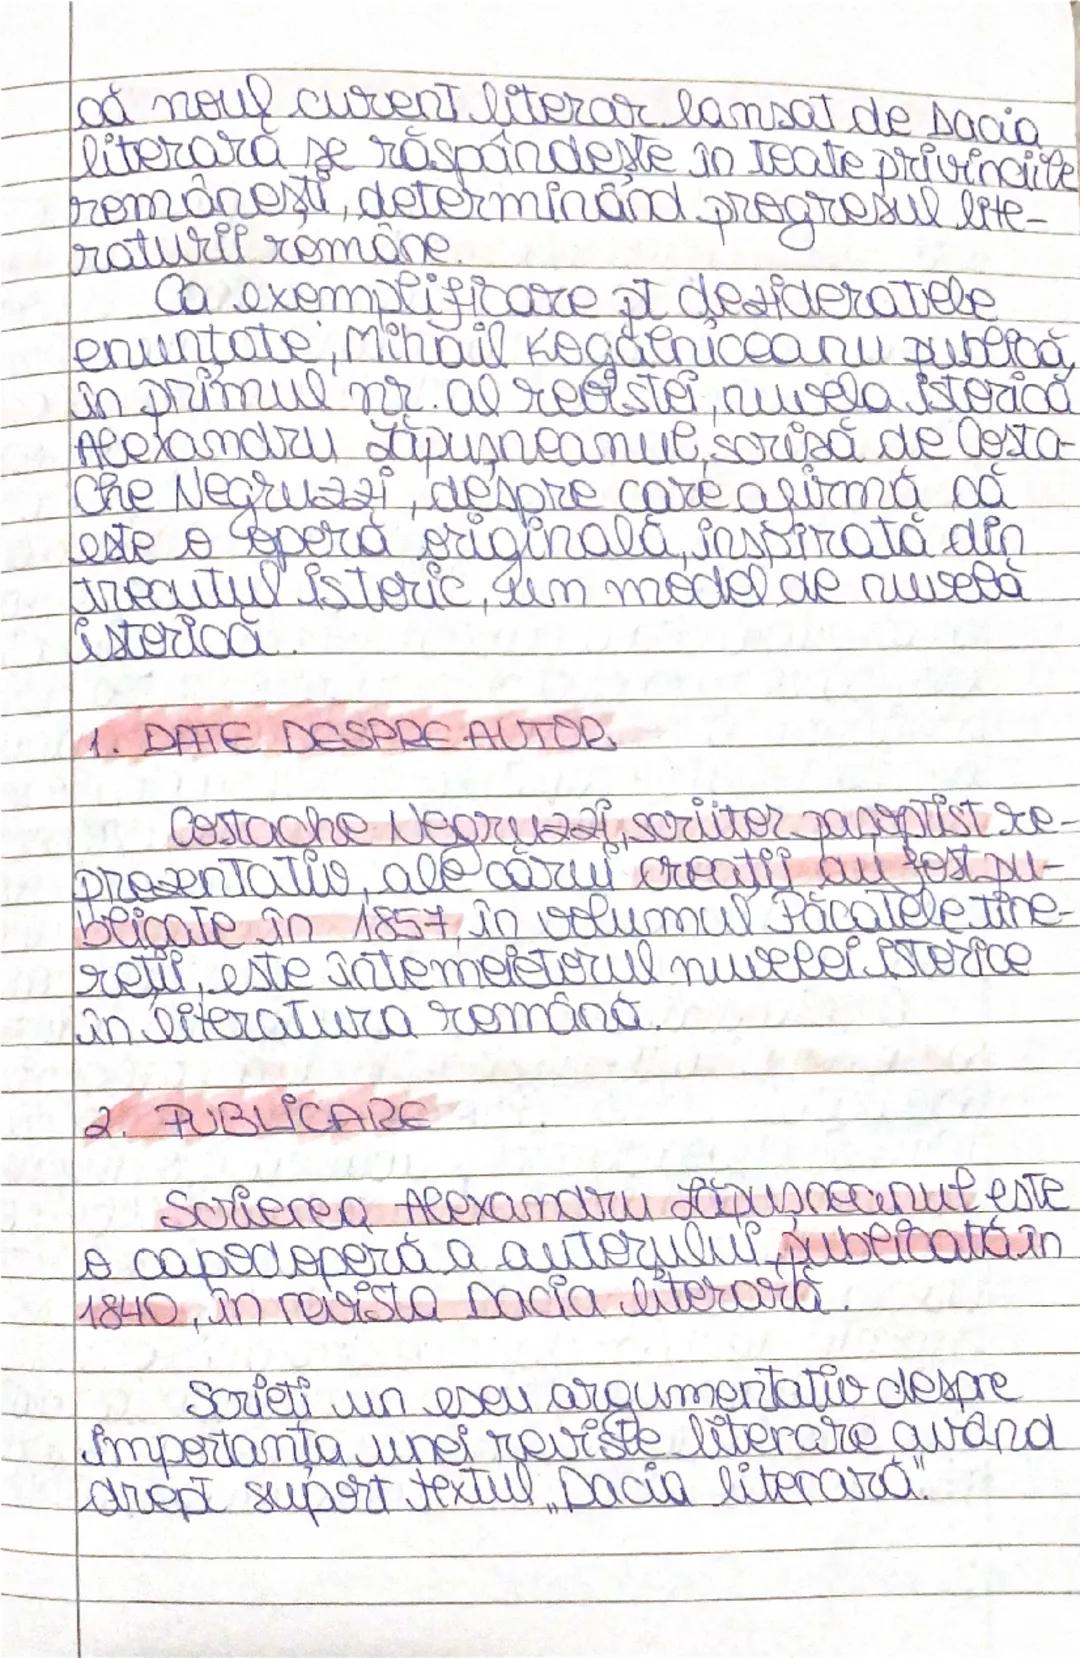 că noul curent literar lansat de Dacia
literară se răspândește în toate privinciile
românești, determinând progresul lite-
raturii române.
Ca exemplificare pt desideratele
enunțate, Mihail Kogălniceanu publică,
în primul nr. al revistei, nuvela istorică
Alexandru Lăpușneanul, scrisă de Costa-
che Negruzzi, despre care afirmă că
este o operă originală, inspirată din
trecutul istoric, un model de nuvelă
istorică.
1. DATE DESPRE AUTOR
Costache Negruzzi, scriitor pașoptist re-
prezentativ, ale cărui creații au fost pu-
blicate în 1857, în volumul Păcatele tine-
reții, este întemeietorul nuvelei istorice
în literatura română.
2. PUBLICARE
Scrierea Alexandru Lăpușneanul este
o capodoperă a autorului, publicată în
1840, în revista Dacia literară.
Scrieți un eseu argumentativ despre
importanța unei reviste literare având
drept suport textul „Dacia literară".